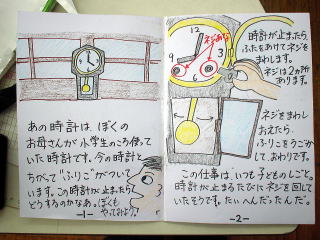 あの時計は、ぼくの
お母さんが小学生のころ使って
いた時計です。今の時計と
ちがって"ふりこ"がついて
います。この時計が止まったら
どうするのかなあ。ぼくも
やってみよう。
-1-
時計が止まったら、
ふたをあけてネジを
まわします。
ネジは2カ所
あります。
ネジあな
12
9
3
6
ネジをまわし
おえたら、
ふりこをうごか
して、おわりです。
この仕事は、いつも子どものしごと。
時計が止まるたびにネジを回して
いたそうです。たいへんだったんだ。
-2-